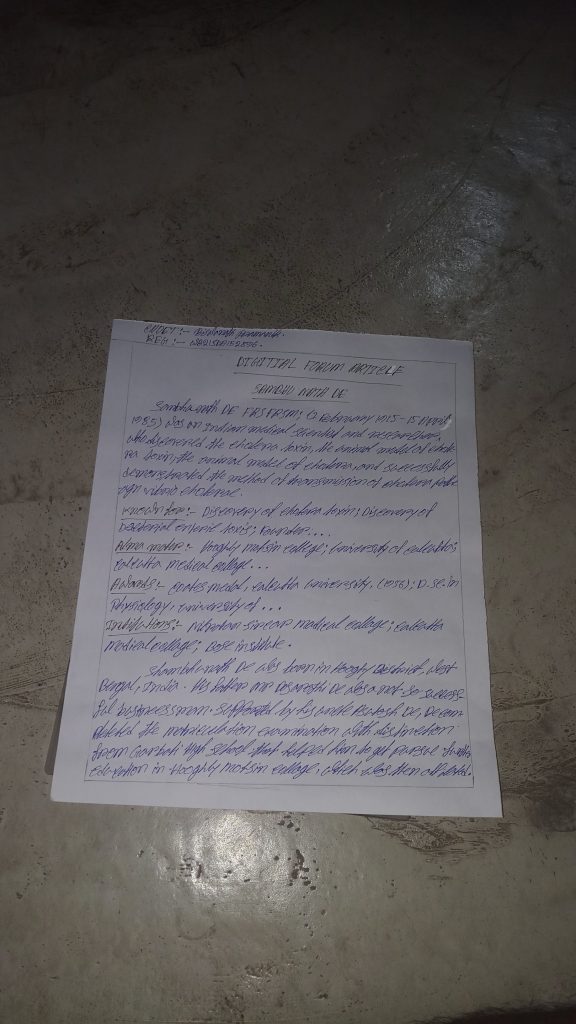 CADET :-
REG :-
DIGITIAL FORUM ARTICLE
SAMBHU NATH DE
Sambhu nath DE FRS FRSM; (1 February 1915 - 15 April
1985) was an Indian medical scientist and researcher,
who discovered the cholera toxin, the animal model of chole-
ra toxin, the animal model of cholera, and successfully
demonstrated the method of transmission of cholera path
ogn vibrio cholerae.
Known for :- Discovery of cholera toxin; Discovery of
bacterial enteric toxis; Founder...
Alma mater :- Hooghly mohsin college; University of calcutta;
calcutta medical collage...
Awards :- Coates medal, calcutta university, (1956); D.sc. in
Physiology, university of ...
Institutions :- Nilratan sircar medical collage; calcutta
medical collage; Bose institute.
Shambhunath De was born in Hooghly District, West
Bengal, India. His father mr Dasarathi De was a not so success
ful businessman. Supported by his uncle Asutosh De, De com-
pleted the matriculation examination with distinction
from Garbati High School that helped him to get pursue
education in Hooghly mohsin collage, which was then